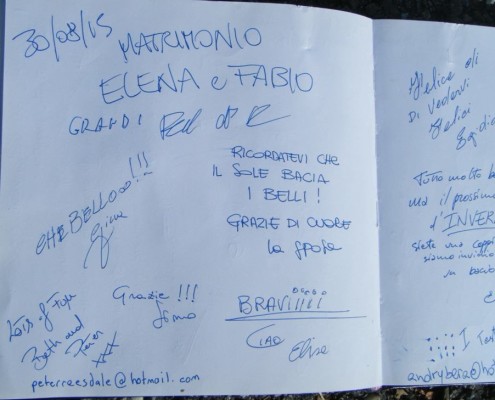 30/08/15
MATRIMONIO
ELENA e FABIO
GRANDI
CHE BELLOOO!!!
RICORDATEVI CHE
IL SOLE BACIA
I BELLI!
GRAZIE DI CUORE
la sposa
Lots of Fun
Beth and
Peter
Grazie !!!
BRAVIIIIII
CIAO
Elisa
peterraesdale@hotmail.com
Felice di
DI VEDERVI
Felici
Tutto molto b
ma il prossimo
d'INVER
siete una coppi
siamo invidio
un bacio
I
andrybera@hot